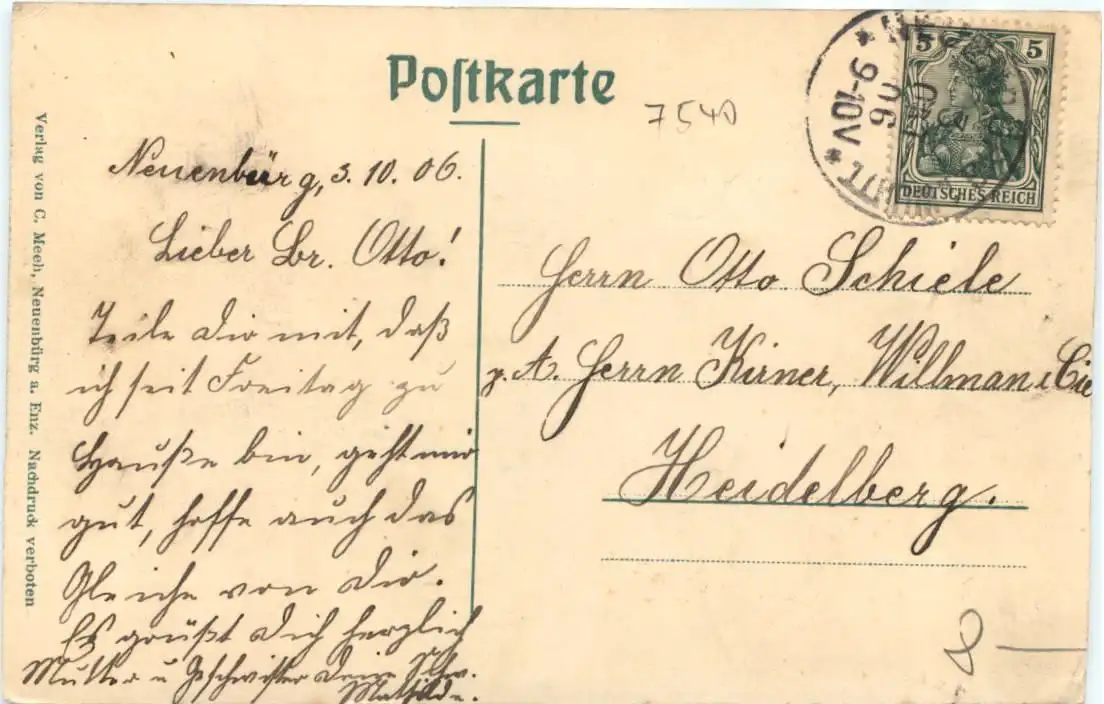 Postkarte
7540
Neuenbürg, 3. 10. 06.
Lieber Br. Otto!
Teile Dir mit, daß
ich seit Freitag zu
Hauße bin, geht mir
gut, hoffe auch das
Gleiche von Dir.
Es grüßt Dich herzlich
Mutter u Geschwister Deine Schw.
Mathilde.
Herrn Otto Schiele
p. A. Herrn Kirner, Willman & Cie
Heidelberg.
5 5
DEUTSCHES REICH
9-10V
Verlag von C. Meeh, Neuenbürg a. Enz. Nachdruck verboten